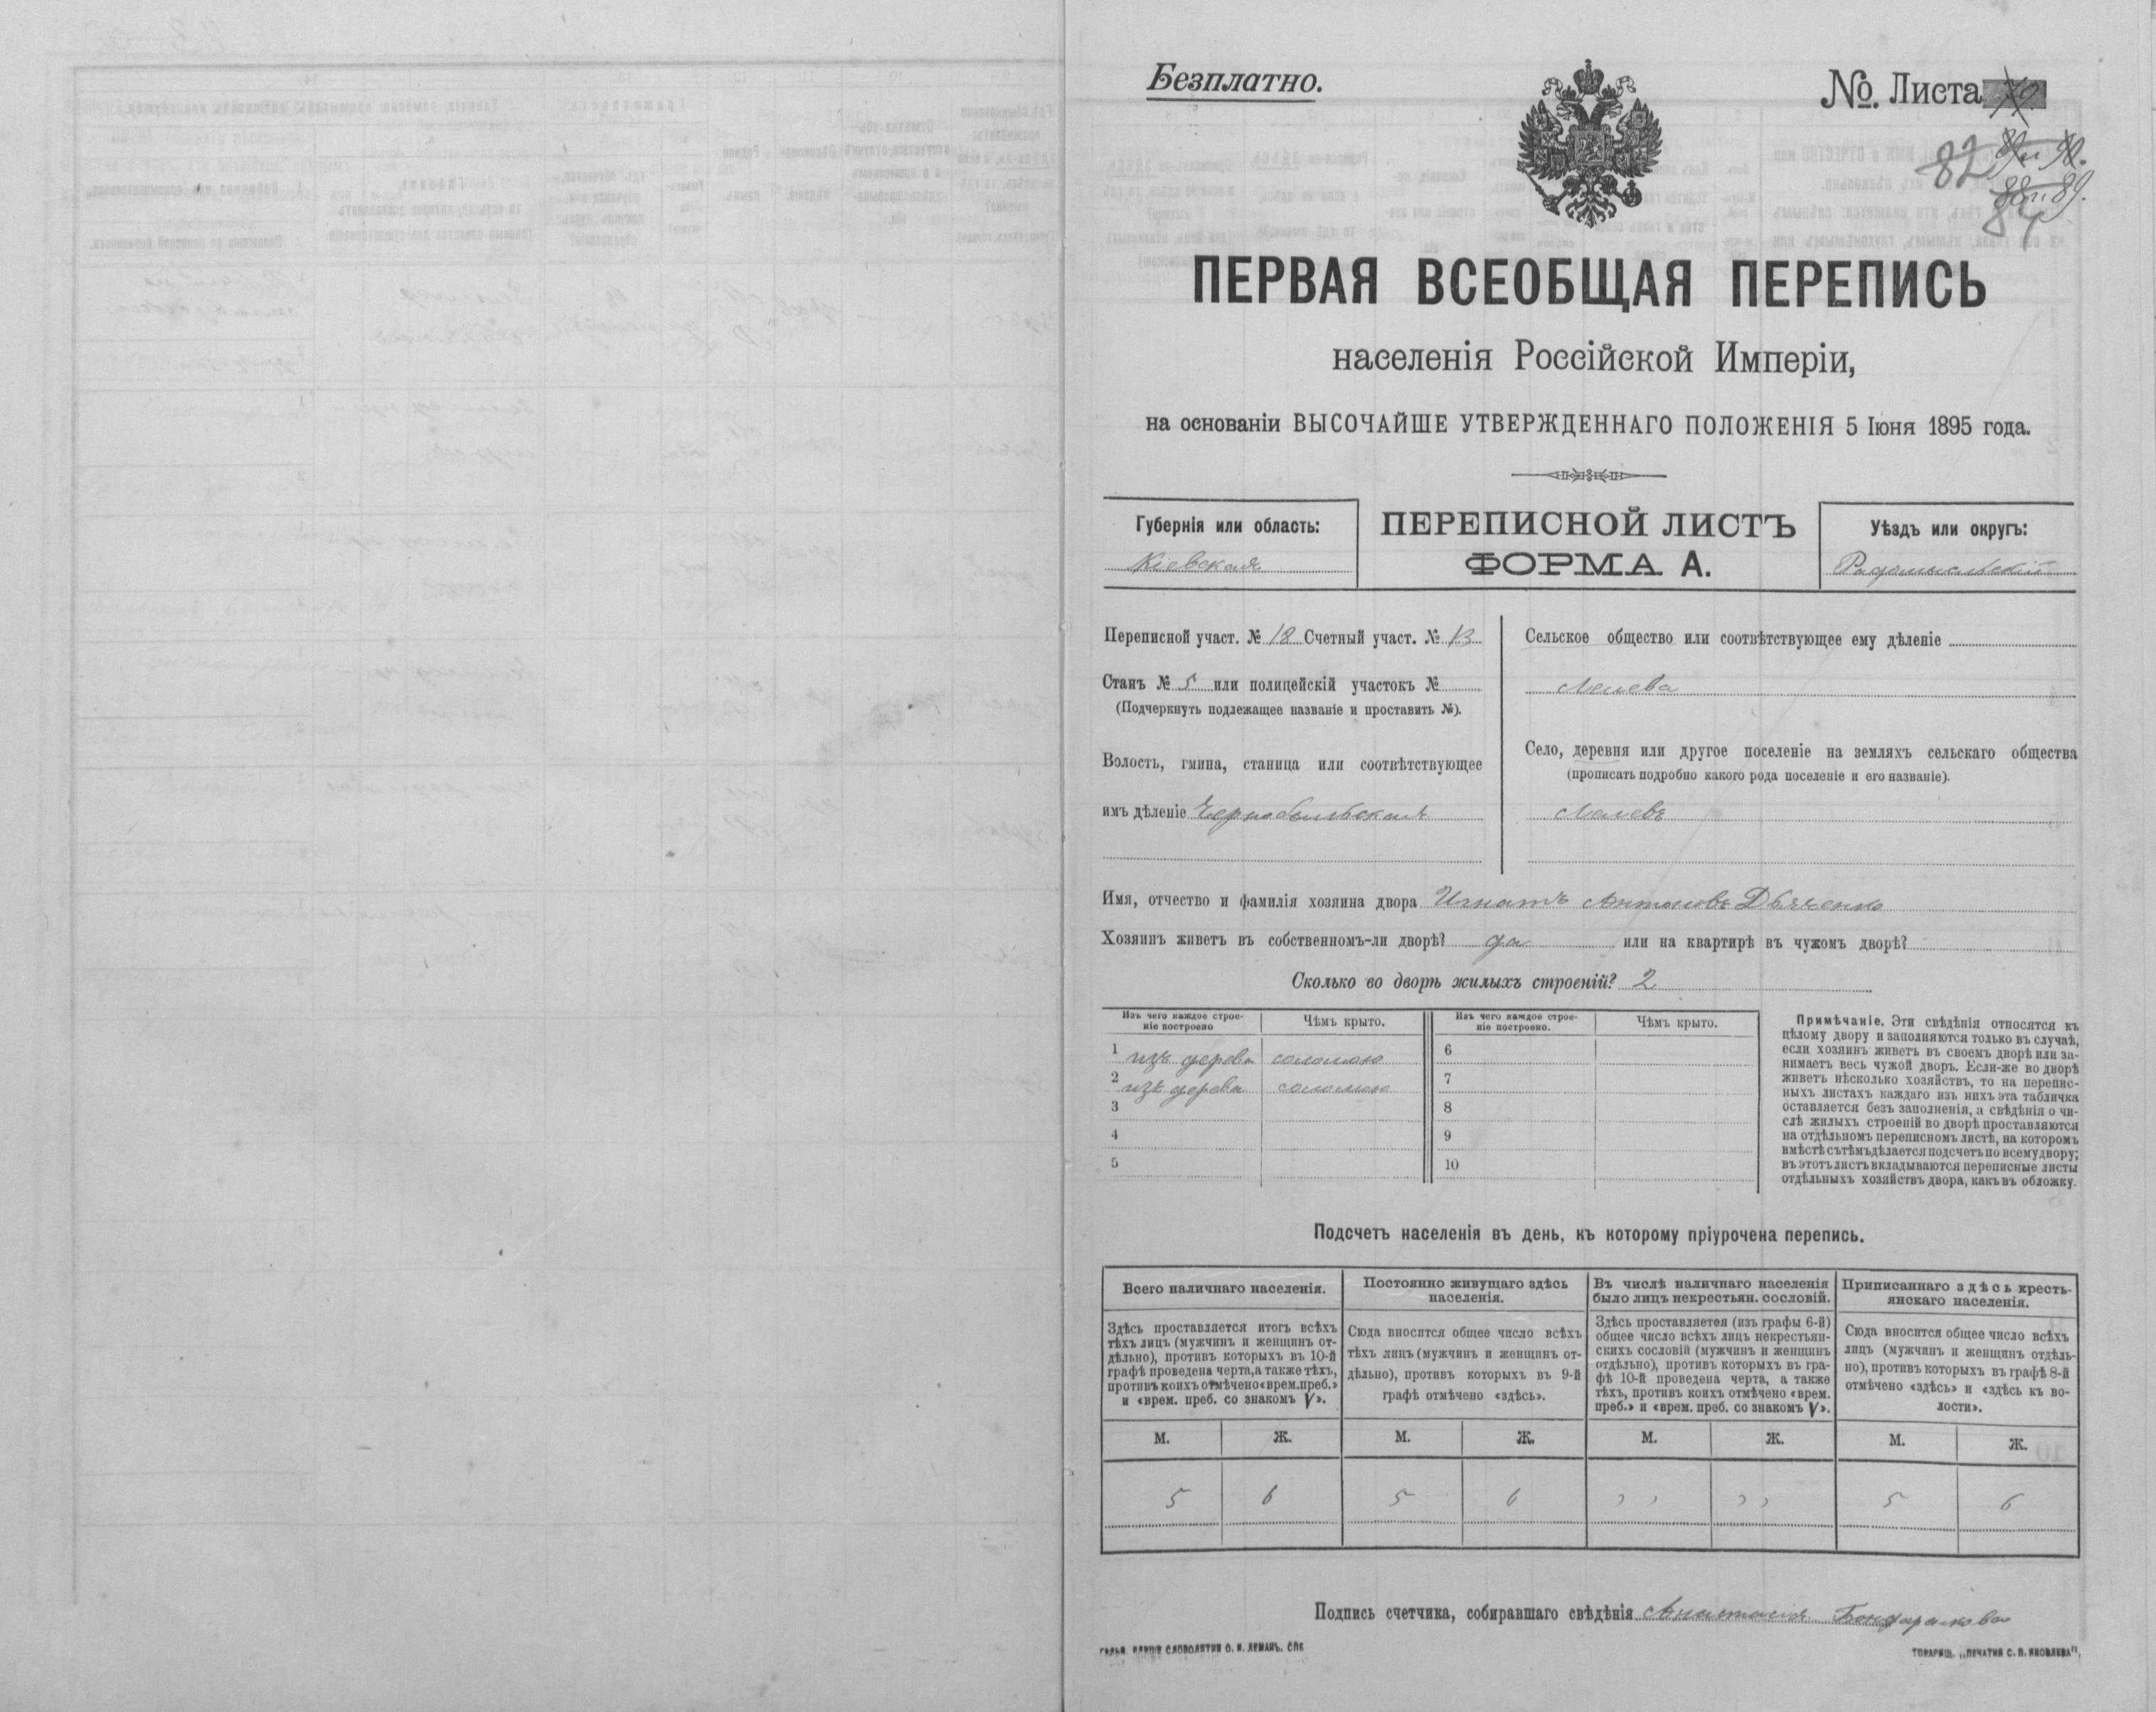 Безплатно.
№. Листа
82
ПЕРВАЯ ВСЕОБЩАЯ ПЕРЕПИСЬ
населенія Россійской Имперіи,
на основаніи ВЫСОЧАЙШЕ УТВЕРЖДЕННАГО ПОЛОЖЕНІЯ 5 Іюня 1895 года.
Губернія или область:
Кіевская
ПЕРЕПИСНОЙ ЛИСТЪ
ФОРМА А.
Уѣздъ или округъ:
Радомысльскій
Переписной участ. № 18 Счетный участ. № 13
Станъ № 5 или полицейскій участокъ №
(Подчеркнуть подлежащее названіе и проставить №).
Волость, гмина, станица или соотвѣтствующее
имъ дѣленіе Чернобыльская
Сельское общество или соотвѣтствующее ему дѣленіе
Лелева
Село, деревня или другое поселеніе на земляхъ сельскаго общества
(прописать подробно какого рода поселеніе и его названіе).
Лелевъ
Имя, отчество и фамилія хозяина двора Игнатъ Антоновъ Дьяченко
Хозяинъ живетъ въ собственномъ-ли дворѣ? да или на квартирѣ въ чужомъ дворѣ?
Сколько во дворѣ жилыхъ строеній? 2
Изъ чего каждое строе-
ніе построено
Чѣмъ крыто.
Изъ чего каждое строе-
ніе построено.
Чѣмъ крыто.
1 изъ дерева соломою
2 изъ дерева соломою
3
4
5
6
7
8
9
10
Примѣчаніе. Эти свѣдѣнія относятся къ
цѣлому двору и заполняются только въ случаѣ,
если хозяинъ живетъ въ своемъ дворѣ или за-
нимаетъ весь чужой дворъ. Если-же во дворѣ
живетъ нѣсколько хозяйствъ, то на перепис-
ныхъ листахъ каждаго изъ нихъ эта табличка
оставляется безъ заполненія, а свѣдѣнія о чи-
слѣ жилыхъ строеній во дворѣ проставляются
на отдѣльномъ переписномъ листѣ, на которомъ
вмѣстѣ съ тѣмъ дѣлается подсчетъ по всему двору;
въ этотъ листъ вкладываются переписные листы
отдѣльныхъ хозяйствъ двора, какъ въ обложку.
Подсчетъ населенія въ день, къ которому пріурочена перепись.
Всего наличнаго населенія.
Здѣсь проставляется итогъ всѣхъ
тѣхъ лицъ (мужчинъ и женщинъ от-
дѣльно), противъ которыхъ въ 10-й
графѣ проведена черта, а также тѣхъ,
противъ коихъ отмѣчено «врем. преб.»
и «врем. преб. со знакомъ V».
Постоянно живущаго здѣсь
населенія.
Сюда вносится общее число всѣхъ
тѣхъ лицъ (мужчинъ и женщинъ от-
дѣльно), противъ которыхъ въ 9-й
графѣ отмѣчено «здѣсь».
Въ числѣ наличнаго населенія
было лицъ некрестьян. сословій.
Здѣсь проставляется (изъ графы 6-й)
общее число всѣхъ лицъ некрестьян-
скихъ сословій (мужчинъ и женщинъ
отдѣльно), противъ которыхъ въ гра-
фѣ 10-й проведена черта, а также
тѣхъ, противъ коихъ отмѣчено «врем.
преб.» и «врем. преб. со знакомъ V».
Приписаннаго здѣсь кресть-
янскаго населенія.
Сюда вносится общее число всѣхъ
лицъ (мужчинъ и женщинъ отдѣль-
но), противъ которыхъ въ графѣ 8-й
отмѣчено «здѣсь» и «здѣсь къ во-
лости».
М. Ж. М. Ж. М. Ж. М. Ж.
5 6 5 6 " " " " 5 6
Подпись счетчика, собиравшаго свѣдѣнія Анастасія
СЛОВОЛИТНИ О. И. ЛЕМАНЪ. СПБ
ТОВАРИЩ. „ПЕЧАТНЯ С. П. ЯКОВЛЕВА".